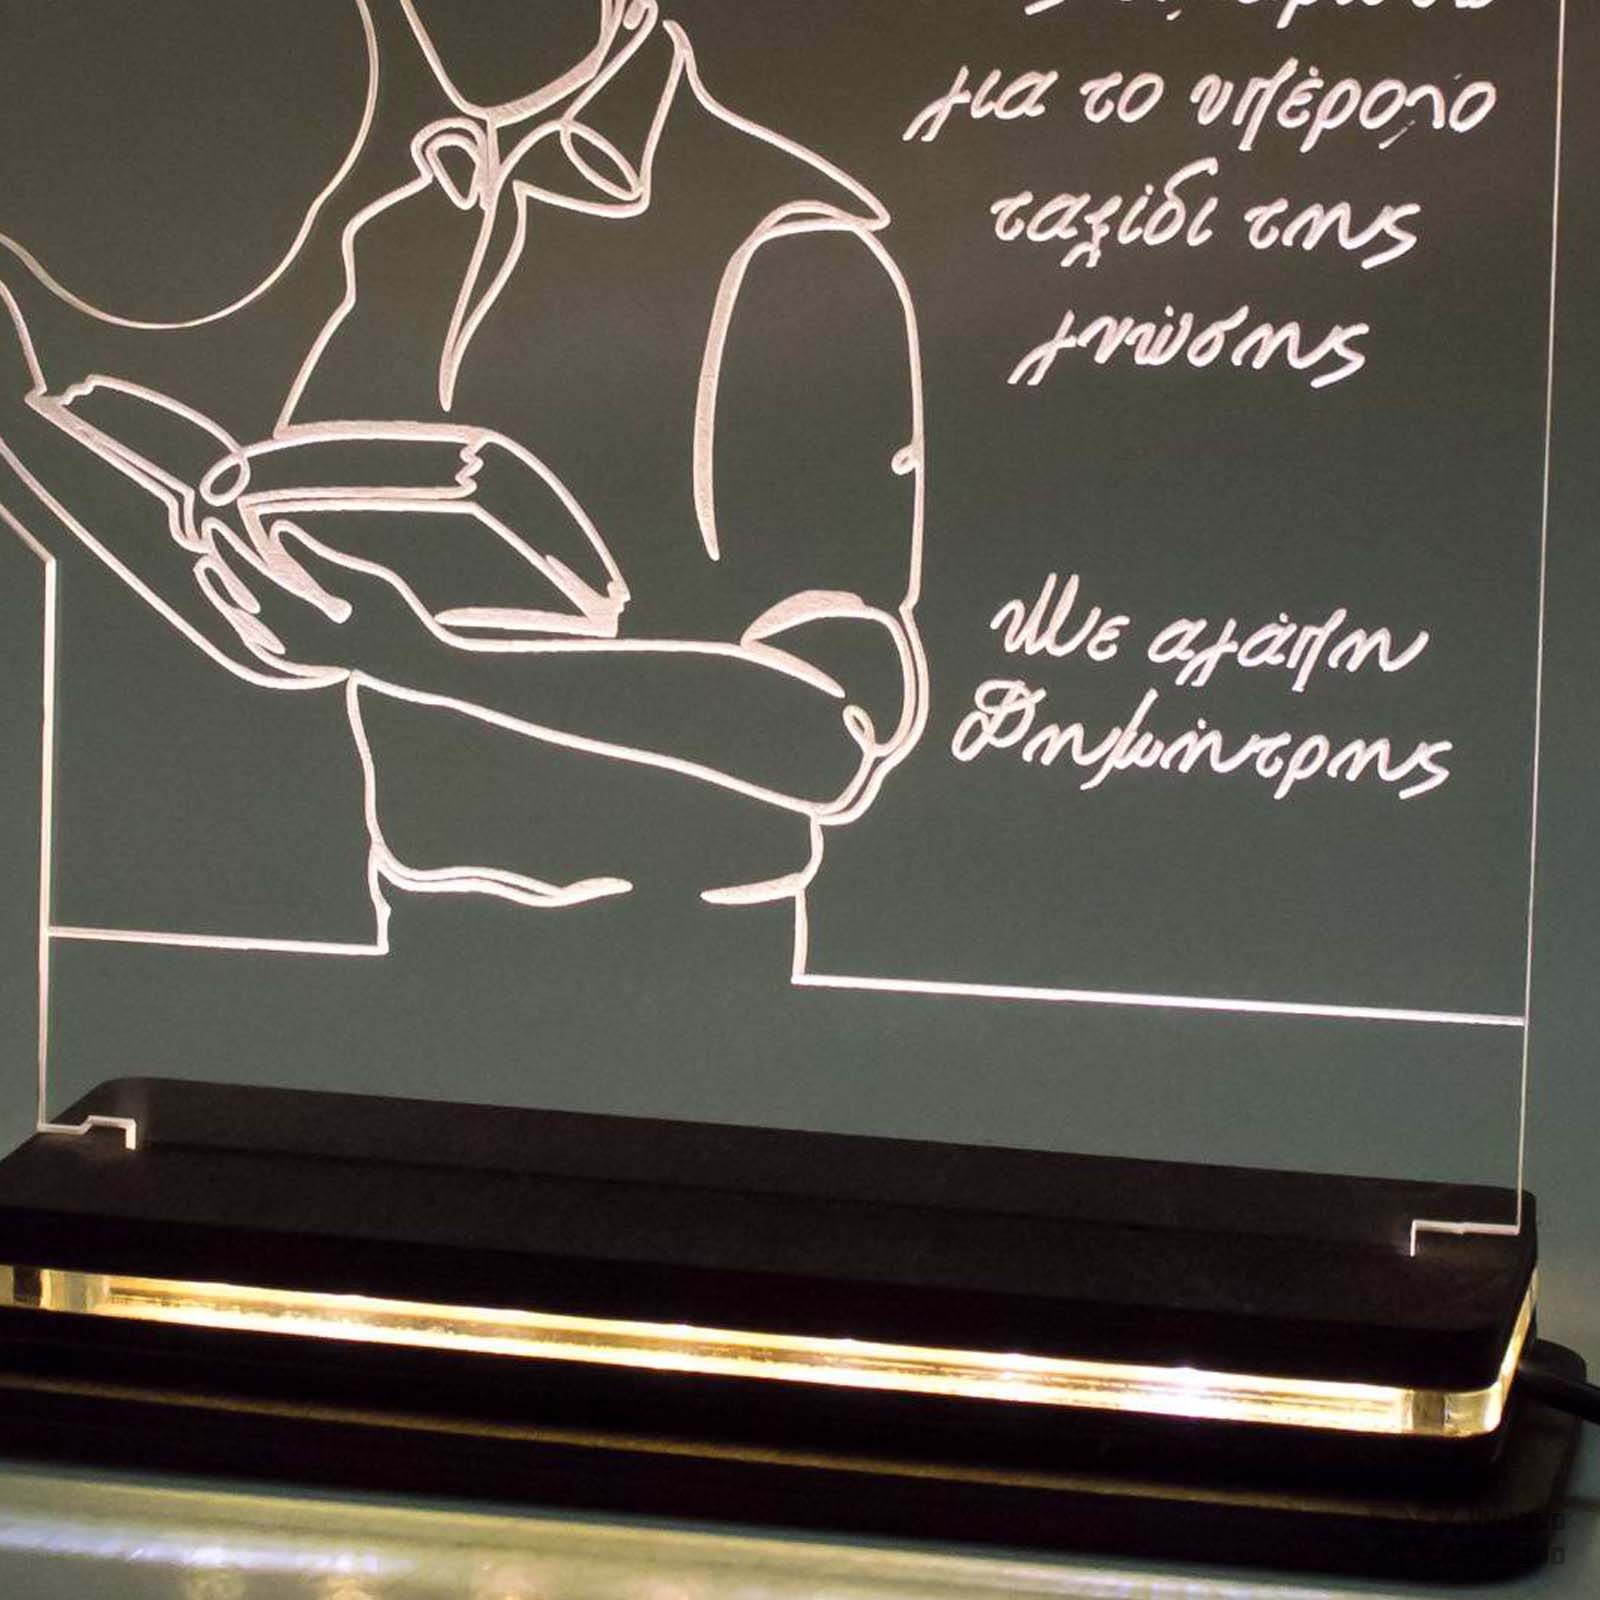 για το υπέροχο
ταξίδι της
γνώσης
Με αγάπη
Δημήτρης